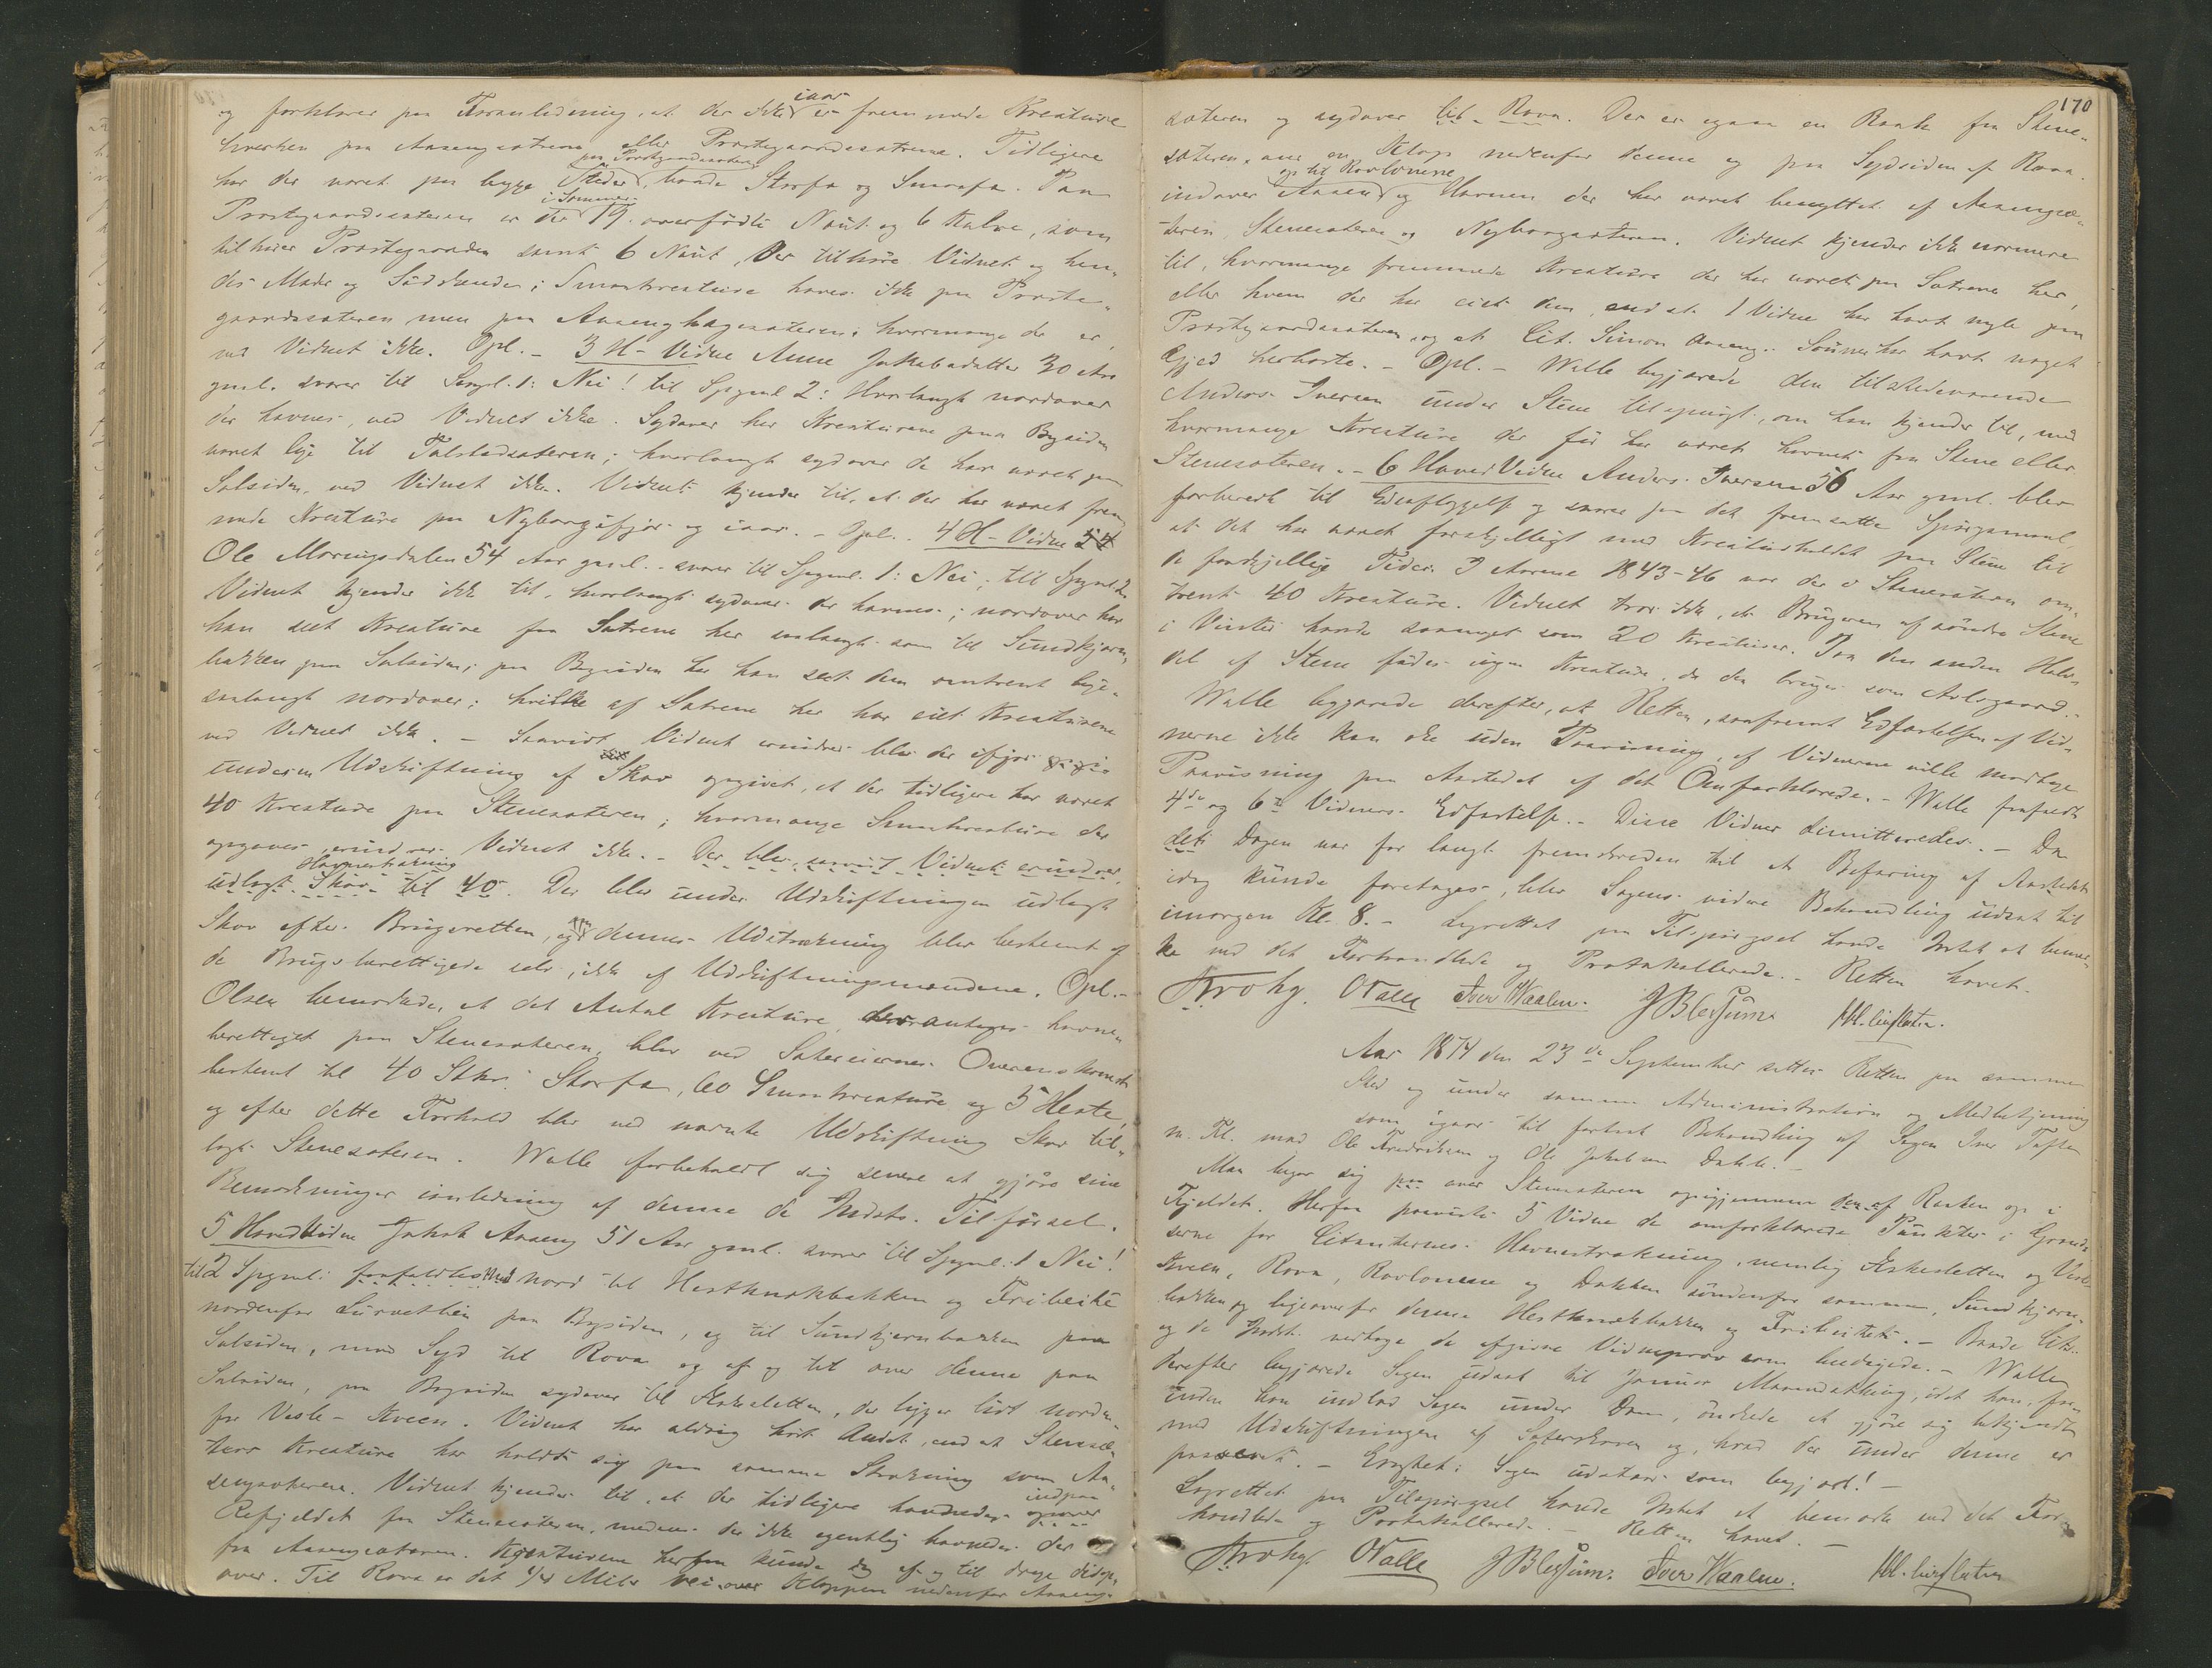 og forklarer paa Foranledning, at der ikke iaar er fremmede Kreature
hverken paa Aasengsætrene eller Præstegaardssætrene. Tidligere
har der været paa begge Steder, paa Præstegaardssæteren baade Storfæ og Smaafæ. Paa
Præstegaardssæteren er der i Sommer 19 overfødte Naut og 6 Kalve, som
tilhører Præstegaarden samt 6 Naut, der tilhøre Vidnet og hen-
des Moder og Sødskende; Smaakreature haves ikke paa Præste-
gaardssæteren men paa Aasenghagesæteren; hvormange der er,
ved Vidnet ikke. Opl. – 3 H-Vidne Anne Jakobsdatter 30 Aar
gml. svarer til Spgml. 1: Nei! til Spgml 2: Hvorlangt nordover
der havnes, ved Vidnet ikke. Sydover har Kreaturene paa Bygsiden
været lige til Tolstadsæteren; hvorlangt sydover de har været paa
Solsiden, ved Vidnet ikke. Vidnet kjender til, at der har været frem-
mede Kreature paa Nyborg ifjor og iaar. – Opl. 4 H-Vidne
Ole Moringsdalen 54 Aar gml. svarer til Spgml. 1: Nei; til Spgml 2.
Vidnet kjender ikke til, hvorlangt sydover der havnes; nordover har
han seet Kreature fra Sætrene her saalangt som til Sundkjærn-
bakken paa Solsiden; paa Bygsiden har han seet dem omtrent lige-
saalangt nordover; hvilke af Sætrene her har eiet Kreaturene
ved Vidnet ikke. – Saavidt Vidnet erindrer blev der ifjor
under en Udskiftning af Skov opgivet, at der tidligere har været
40 Kreature paa Stenesæteren; hvormange Smaakreature der
opgaves, erindrer Vidnet ikke. – Der blev, saavidt Vidnet erindrer,
udlagt Skov Havnestrækning til 40. Der blev under Udskiftningen udlagt
Skov efter Brugsretten, og dennes Udstrækning blev bestemt af
de Brugsberettigede selv, ikke af Udskiftningsmændene. Opl. –
Olsen bemærkede, at det Antal Kreature, der antages havne-
berettiget paa Stenesæteren, blev ved Sætereiernes Overenskomst
bestemt til 40 Stkr. Storfæ, 60 Smaakreature og 5 Heste,
og efter dette Forhold blev ved nævnte Udskiftning Skov til-
lagt Stenesæteren. Walle forbeholdt sig senere at gjøre sine
Bemærkninger i anledning af denne de Indst. Tilførsel.
5 Hovedvidne Jakob Aaseng 51 Aar gml. svarer til Spgml. 1 Nei!
til 2 Spgml: Mod nord til Hestknækbakken og Tribeite
nordenfor Survetlien paa Bygsiden, og til Sundkjernbakken paa
Solsiden, mod Syd til Rova og af og til over denne paa
Solsiden, paa Bygsiden sydover til Askesletten, der ligger lidt norden-
for Vesle-Kveen. Vidnet har aldrig hørt Andet, end at Stenesæ-
terns Kreature har holdt sig paa samme Strækning som Aa-
sengsæterens. Vidnet kjender til, at der tidligere havnedes indpaa opover
Refjeldet fra Stenesæteren, medens der ikke egentlig havnedes der
fra Aasengsæteren. Kreaturene herfra kunde dog af og til drage didop-
over. Til Rova er det 1/4 Mils Vei over Kloppen nedenfor Aaseng-
170
sæteren og sydover til Rova. Der er ogsaa en Raak fra Stene-
sæteren over en Klop nedenfor denne og paa Sydsiden af Rova
indover Aasen og til Rovlonene og Havnen der har været benyttet af Aasengsæ-
teren, Stenesæteren og Nyborgsæteren. Vidnet kjender ikke nærmere
til, hvormange fremmede Kreature der har været paa Sætrene her,
eller hvem der har eiet dem, end at 1 Vidne har havt nogle paa
Præstegaardssæteren, og at Cit. Simon Aasengs Sønner har havt noget
Gjed herborte. – Opl. – Walle begjærede den tilstedeværende
Anders Iversen under Stene tilspurgt, om han kjender til, med
hvormange Kreature der før har været havnet fra Stene eller
Stenesæteren. – 6 Hoved Vidne Anders Iversen 56 Aar gml. blev
forberedt til Edsaflæggelse og svarer paa det fremsatte Spørgsmaal,
at det har været forskjelligt med Kreaturholdet paa Stene til
de forskjellige Tider. I Aarene 1843-46 var der i Stenesæteren om-
trent 40 Kreature. Vidnet tror ikke, at Brugeren af søndre Stene
i Vinter havde saameget som 20 Kreature. Paa den anden Halv-
del af Stene fødes ingen Kreature, da den bruges som Avlsgaard. –
Walle begjærede derefter, at Retten, saafremt Edfæstelsen af Vid-
nerne ikke kan ske uden Paavisning af Vidnerne ville modtage
Paavisning paa Aastedet af det Omforklarede. – Walle frafaldt
4de og 6te Vidners Edfæstelse. – Disse Vidner dimitteredes. – Da
Dagen var for langt fremskreden til at Befaring af Aastedet
idag kunde foretages, blev Sagens videre Behandling udsat til
imorgen Kl. 8. – Lagrettet paa Tilspørgsel havde Intet at bemær-
ke ved det Forhandlede og Protokollerede. – Retten hævet.
Krohg. OWalle Iver Waalen. JBlessum.
Aar 1874 den 23de September sattes Retten paa samme
Sted og under samme Administration og Medbetjening
som igaar til fortsat Behandling af Sagen Iver Toften
m. Fl. mod Ole Fredriksen og Ole Jakobsen Dahle. –
Man begav sig over Stenesæteren opigjennem Raaken op i
Fjeldet. Herfra paaviste 5 Vidne de omforklarede Punkter i Grænd-
serne for Citanternes Havnestrækning, nemlig Askesletten og Vesle-
Kveen, Rova, Rovlonene og Dokken søndenfor samme, Sundkjærn-
bakken og ligeoverfor denne Hestknækbakken og Tribeitet. – Baade Cit.
og de Indst. vedtage de afgivne Vidneprov som beedigede. – Walle
derefter begjærede Sagen udsat til Januar Maanedsthing, idet han, for-
inden han indlod Sagen under Dom, ønskede at gjøre sig bekjendt
med Udskiftningen af Sæterskoven og, hvad der under denne er
passeret. – Eragtet: Sagen udstaar som begjært! –
Lagrettet paa Tilspørgsel havde Intet at bemærke ved det For-
handlede og Protokollerede. – Retten hævet. –
Krohg OWalle JBlessum. Iver Waalen.